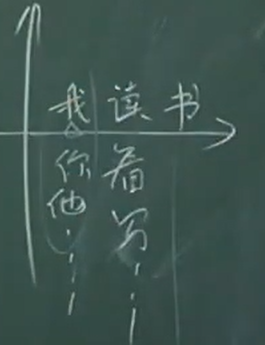 我读书
你看
他写